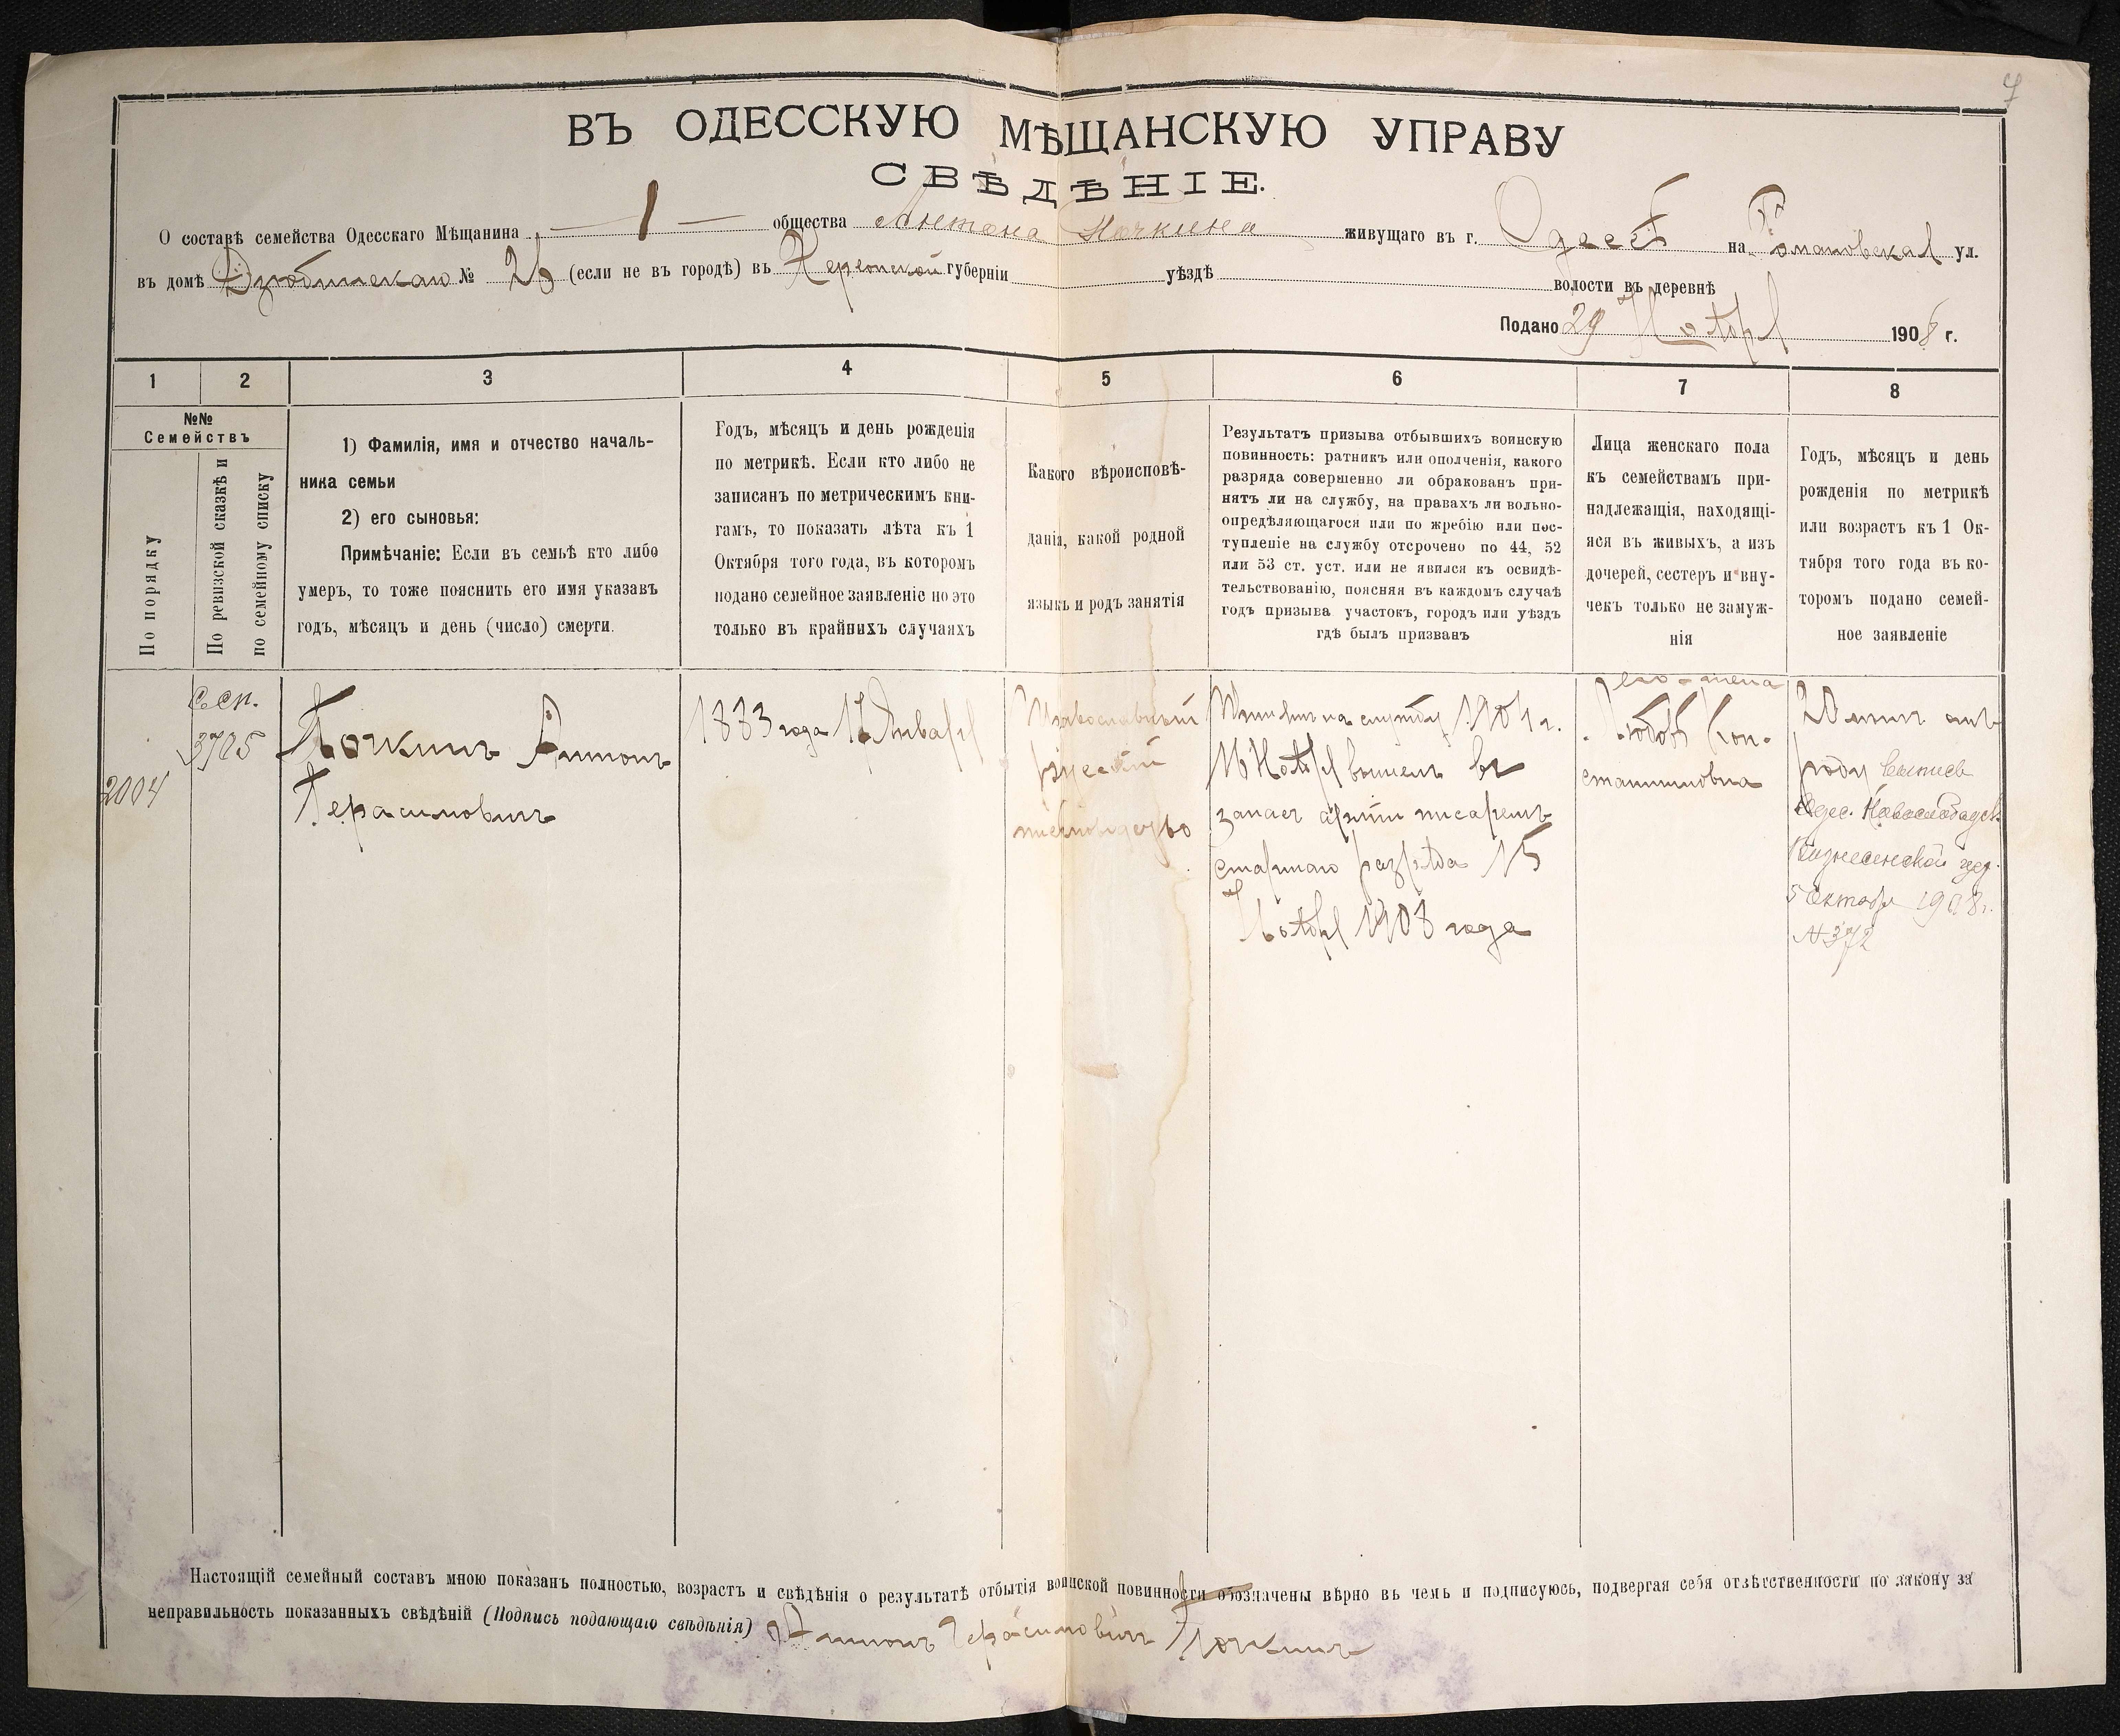 7
ВЪ ОДЕССКУЮ МѢЩАНСКУЮ УПРАВУ
СВѢДѢНІЕ.
О составѣ семейства Одесскаго Мѣщанина — 1 — общества Антона Почкина живущаго въ г. Одессѣ на Романовская ул.
въ домѣ № 26 (если не въ городѣ) въ Херсонской губерніи уѣздѣ волости въ деревнѣ
Подано 29 Ноября 1908 г.
1 2 3 4 5 6 7 8
№№
Семействъ
По порядку
По ревизской сказкѣ и
по семейному списку
1) Фамилія, имя и отчество началь-
ника семьи
2) его сыновья:
Примѣчаніе: Если въ семьѣ кто либо
умеръ, то тоже пояснить его имя указавъ
годъ, мѣсяцъ и день (число) смерти.
Годъ, мѣсяцъ и день рожденія
по метрикѣ. Если кто либо не
записанъ по метрическимъ кни-
гамъ, то показать лѣта къ 1
Октября того года, въ которомъ
подано семейное заявленіе но это
только въ крайнихъ случаяхъ
Какого вѣроисповѣ-
данія, какой родной
языкъ и родъ занятія
Результатъ призыва отбывшихъ воинскую
повинность: ратникъ или ополченія, какого
разряда совершенно ли обракованъ при-
нятъ ли на службу, на правахъ ли вольно-
опредѣляющагося или по жребію или пос-
тупленіе на службу отсрочено по 44, 52
или 53 ст. уст. или не явился къ освидѣ-
тельствованію, поясняя въ каждомъ случаѣ
годъ призыва участокъ, городъ или уѣздъ
гдѣ былъ призванъ
Лица женскаго пола
къ семействамъ при-
надлежащія, находящі-
яся въ живыхъ, а изъ
дочерей, сестеръ и вну-
чекъ только не замуж-
нія
Годъ, мѣсяцъ и день
рожденія по метрикѣ
или возрастъ къ 1 Ок-
тября того года въ ко-
торомъ подано семей-
ное заявленіе
2004
с. сп.
3725
Почкинъ Антонъ
Герасимовичъ
1883 года 17 Января
Православный
русскій
письмоводство
Принятъ на службу 1904 г.
16 Ноября вышелъ въ
запасъ арміи писаремъ
старшаго разряда 15
Ноября 1908 года
его жена
Любовь Кон-
стантиновна
20 лѣтъ отъ
роду выпись
Одес. Новослободск.
Вознесенской цер.
5 Октября 1908 г.
№ 372
Настоящій семейный составъ мною показанъ полностью, возрастъ и свѣдѣнія о результатѣ отбытія воинской повинности обозначены вѣрно въ чемъ и подписуюсь, подвергая себя отвѣтственности по закону за
неправильность показанныхъ свѣдѣній (Подпись подающаго свѣдѣнія) Антонъ Герасимовичъ Почкинъ